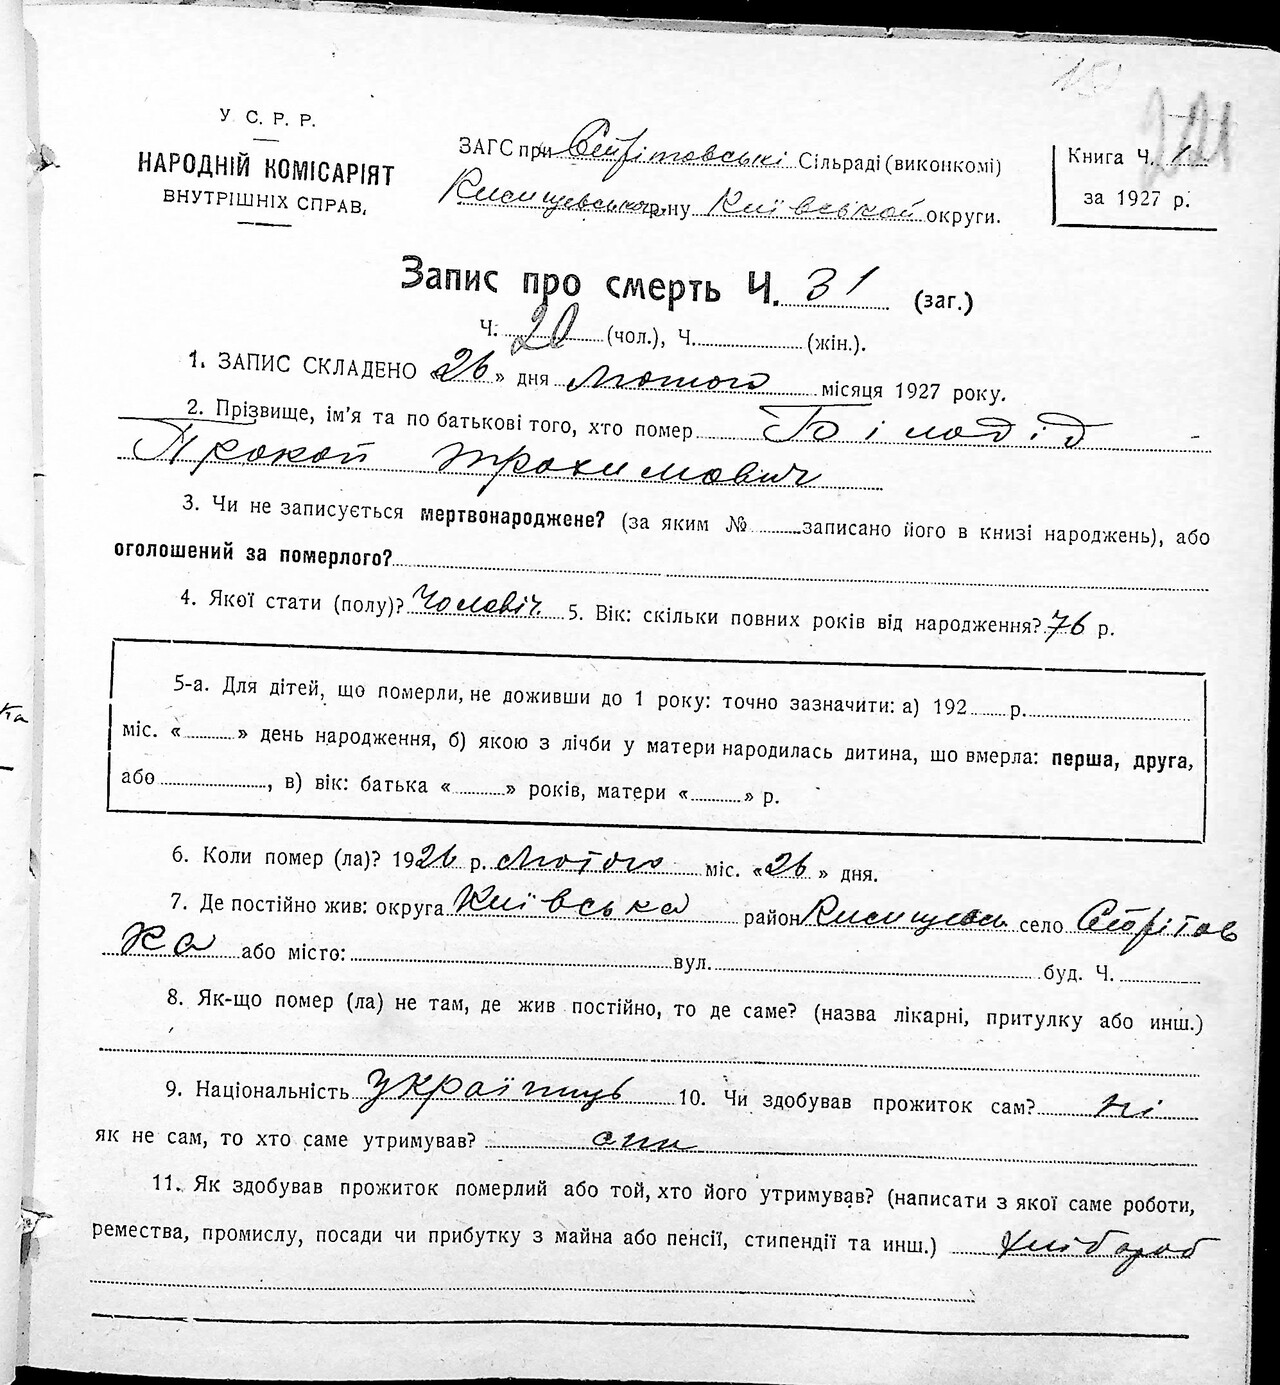 221
У С. Р. Р.
НАРОДНІЙ КОМІСАРІЯТ
ВНУТРІШНІХ СПРАВ,
ЗАГС при Сільраді (виконкомі)
р-ну Київськой округи.
Книга Ч. 1
за 1927 р.
Запис про смерть Ч. 31 (заг.)
Ч. 20 (чол.), Ч. (жін.).
1. ЗАПИС СКЛАДЕНО «26» дня Лютого місяця 1927 року.
2. Прізвище, ім'я та по батькові того, хто помер
Прокоп Трохимович
3. Чи не записується мертвонароджене? (за яким № записано його в книзі народжень), або
оголошений за померлого?
4. Якої стати (полу)? Чоловіч. 5. Вік: скільки повних років від народження? 76 р.
5-а. Для дітей, що померли, не доживши до 1 року: точно зазначити: а) 192 р.
міс. « » день народження, б) якою з лічби у матери народилась дитина, що вмерла: перша, друга,
або , в) вік: батька « » років, матери « » р.
6. Коли помер (ла)? 1926 р. Лютого міс. «26» дня.
7. Де постійно жив: округа Київська район село
ка або місто: вул. буд. Ч.
8. Як-що помер (ла) не там, де жив постійно, то де саме? (назва лікарні, притулку або инш.)
9. Національність Українць 10. Чи здобував прожиток сам? ні
як не сам, то хто саме утримував? син
11. Як здобував прожиток померлий або той, хто його утримував? (написати з якої саме роботи,
ремества, промислу, посади чи прибутку з майна або пенсії, стипендії та инш.) Хлібороб